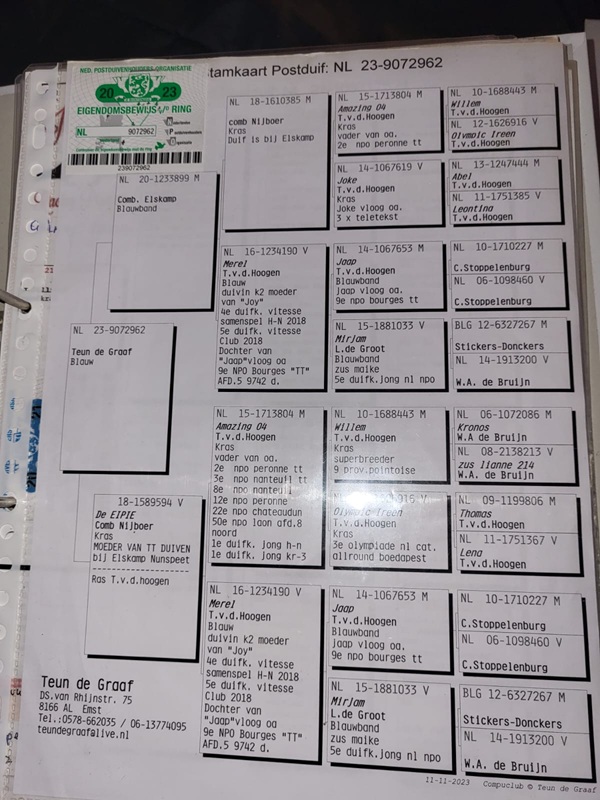 NED. POSTDUIVENHOUDERS-ORGANISATIE
20 23
EIGENDOMSBEWIJS v/d RING
NL 9072962
239072962
stamkaart Postduif: NL 23-9072962
NL 20-1233899 M
Comb. Elskamp
Blauwband
NL 23-9072962
Teun de Graaf
Blauw
18-1589594 V
De EIPIE
Comb Nijboer
Kras
MOEDER VAN TT DUIVEN
bij Elskamp Nunspeet
Ras T.v.d.hoogen
NL 18-1610385 M
comb Nijboer
Kras
Duif is bij Elskamp
NL 16-1234190 V
Merel
T.v.d.Hoogen
Blauw
duivin k2 moeder
van "Joy"
4e duifk. vitesse
samenspel H-N 2018
5e duifk. vitesse
Club 2018
Dochter van
"Jaap"vloog oa
9e NPO Bourges "TT"
AFD.5 9742 d.
NL 15-1713804 M
Amazing 04
T.v.d.Hoogen
Kras
vader van oa.
2e npo peronne tt
3e npo nanteuil tt
8e npo nanteuil
12e npo peronne
22e npo chateaudun
50e npo laon afd.8
noord
1e duifk. jong h-n
1e duifk. jong kr-3
NL 16-1234190 V
Merel
T.v.d.Hoogen
Blauw
duivin k2 moeder
van "Joy"
4e duifk. vitesse
samenspel H-N 2018
5e duifk. vitesse
Club 2018
Dochter van
"Jaap"vloog oa
9e NPO Bourges "TT"
AFD.5 9742 d.
NL 15-1713804 M
Amazing 04
T.v.d.Hoogen
Kras
vader van oa.
2e npo peronne tt
NL 14-1067619 V
Joke
T.v.d.Hoogen
Kras
Joke vloog oa.
3 x teletekst
NL 14-1067653 M
Jaap
T.v.d.Hoogen
Blauwband
jaap vloog oa.
9e npo bourges tt
NL 15-1881033 V
Mirjam
L.de Groot
Blauwband
zus maike
5e duifk.jong nl npo
NL 10-1688443 M
Willem
T.v.d.Hoogen
Kras
superbreeder
9 prov.pointoise
916 V
Olympic Ireen
T.v.d.Hoogen
Kras
3e olympiade nl cat.
allround boedapest
NL 14-1067653 M
Jaap
T.v.d.Hoogen
Blauwband
jaap vloog oa.
9e npo bourges tt
NL 15-1881033 V
Mirjam
L.de Groot
Blauwband
zus maike
5e duifk.jong nl npo
NL 10-1688443 M
Willem
T.v.d.Hoogen
NL 12-1626916 V
Olympic Ireen
T.v.d.Hoogen
NL 13-1247444 M
Abel
T.v.d.Hoogen
NL 11-1751385 V
Leontina
T.v.d.Hoogen
NL 10-1710227 M
C.Stoppelenburg
NL 06-1098460 V
C.Stoppelenburg
BLG 12-6327267 M
Stickers-Donckers
NL 14-1913200 V
W.A. de Bruijn
NL 06-1072086 M
Kronos
W.A de Bruijn
NL 08-2138213 V
zus lianne 214
W.A. de Bruijn
NL 09-1199806 M
Thomas
T.v.d.Hoogen
NL 11-1751367 V
Lena
T.v.d.Hoogen
NL 10-1710227 M
C.Stoppelenburg
NL 06-1098460 V
C.Stoppelenburg
BLG 12-6327267 M
Stickers-Donckers
NL 14-1913200 V
W.A. de Bruijn
Teun de Graaf
DS.van Rhijnstr. 75
8166 AL Emst
Tel.:0578-662035 / 06-13774095
teundegraaf@live.nl
11-11-2023 Compuclub © Teun de Graaf